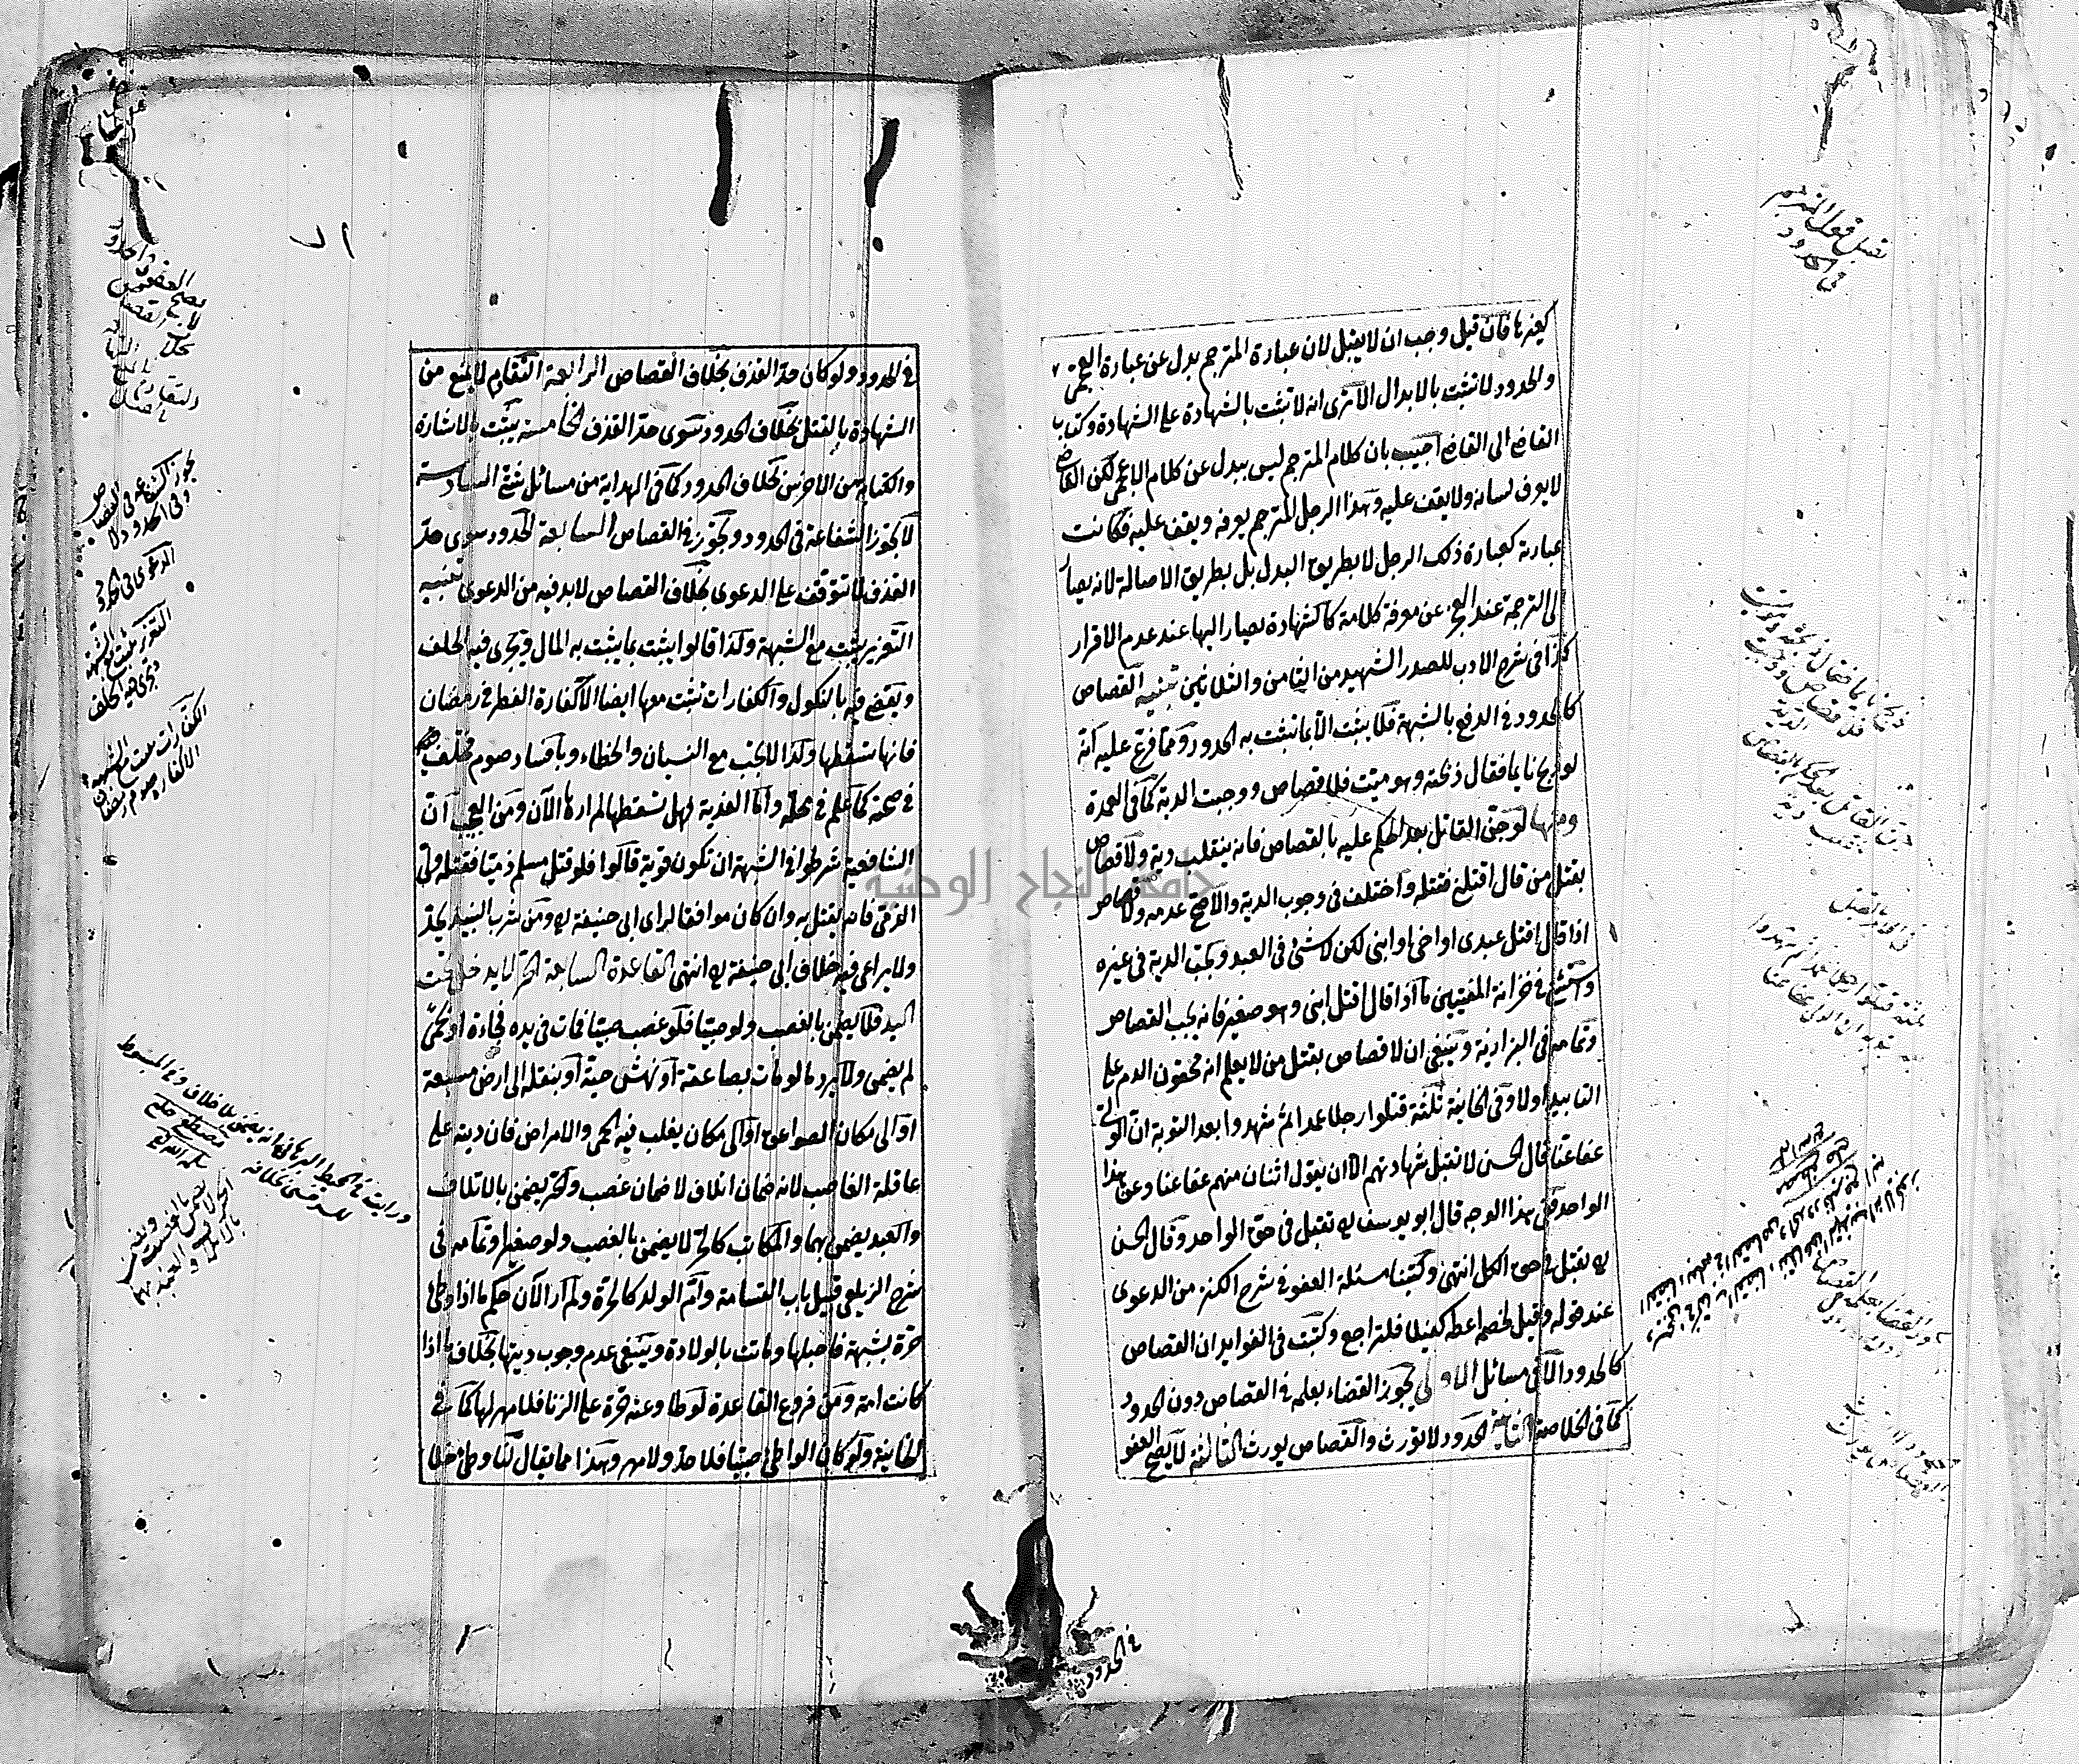 كغيرها فان قيل وجب ان لا يقبل لان عبارة المترجم بدل عن عبارة العجمى
والحدود لا تثبت بالابدال الا ترى انه لا تثبت بالشهادة على الشهادة وكتاب
القاضى الى القاضى اجيب بان كلام المترجم ليس ببدل عن كلام الاعجمى لكن القاضى
لا يعرف لسانه ولا يقف عليه وهذا الرجل المترجم يعرفه ويقف عليه فكانت
عبارته كعبارة ذلك الرجل لا بطريق البدل بل بطريق الاصالة لانه يصار
الى الترجمة عند العجز عن معرفة كلامه كالشهادة يصار اليها عند عدم الاقرار
كذا فى شرح الادب للصدر الشهيد من الثامن والثلاثين تنبيه القصاص
كالحدود فى الدفع بالشبهة فلا يثبت الا بما تثبت به الحدود ومما فرع عليه انه
لو ذبح نايما فقال ذبحته وهو ميت فلا قصاص ووجبت الدية كما فى العمدة
ومنها لو جن القاتل بعد الحكم عليه بالقصاص فانه ينقلب دية ولا قصاص
بقتل من قال اقتلنى فقتله واختلف فى وجوب الدية والاصح عدمه ولا قصاص
اذا قال اقتل عبدى او اخى او ابنى لكن لا شئ فى العبد وتجب الدية فى غيره
واستثنى فى خزانة المفتيين ما اذا قال اقتل ابنى وهو صغير فانه يجب القصاص
وتمامه فى البزازية وينبغى ان لا قصاص بقتل من لا يعلم انه محقون الدم على
التابيد اولا وفى الخانية ثلثة قتلوا رجلا عمدا ثم شهدوا بعد التوبة ان الولى
عفا عنا قال الحسن لا تقبل شهادتهم الا ان يقول اثنان منهم عفا عنا وعن هذا
الواحد ففى هذا الوجه قال ابو يوسف ره تقبل فى حق الواحد وقال الحسن
ره يقبل فى حق الكل انتهى وكتبنا مسئلة العفو فى شرح الكنز من الدعوى
عند قوله وقيل لخصمه اعطه كفيلا فلتراجع وكتبت فى الفوايد ان القصاص
كالحدود الا فى مسائل الاولى يجوز القضاء بعلمه فى القصاص دون الحدود
كما فى الخلاصة الثانية الحدود لا تورث والقصاص يورث الثالثة لا يصح العفو
فى الحدود
٧١
فى الحدود ولو كان حد القذف بخلاف القصاص الرابعة التقادم لا يمنع من
الشهادة بالقتل بخلاف الحدود سوى حد القذف الخامسة يثبت بالاشارة
والكتابة من الاخرس بخلاف الحدود كما فى الهداية من مسائل شتى السادسة
لا تجوز الشفاعة فى الحدود وتجوز فى القصاص السابعة الحدود سوى حد
القذف لا تتوقف على الدعوى بخلاف القصاص لا بد فيه من الدعوى تنبيه
التعزير يثبت مع الشبهة ولذا قالوا يثبت بما يثبت به المال ويجرى فيه الحلف
ويقضى فيه بالنكول والكفارات تثبت معها ايضا الا كفارة الفطر فى رمضان
فانها تسقطها ولذا لا تجب مع النسيان والخطاء وبافساد صوم مختلف
فى صحته كما علم فى محله واما الفدية فهل تسقطها لم اره الآن ومن العجب ان
الشافعية شرطوا فى الشبهة ان تكون قوية قالوا فلو قتل مسلم ذميا فقتله ولى
الذمى فانه يقتل به وان كان موافقا لراى ابى حنيفة ره ومن شرب النبيذ يحد
ولا يراعى فيه خلاف ابى حنيفة ره انتهى القاعدة السابعة الحر لا يدخل تحت
اليد فلا يضمن بالغصب ولو صبيا فلو غصب صبيا فمات فى يده فجاءة او بحمى
لم يضمن ولا يرد ما لو مات بصاعقة او نهش حية او بنقله الى ارض مسبعة
او الى مكان الصواعق او الى مكان يغلب فيه الحمى والامراض فان ديته على
عاقلة الغاصب لانه ضمان اتلاف لا ضمان غصب والحر يضمن بالاتلاف
والعبد يضمن بهما والمكاتب كالحر لا يضمن بالغصب ولو صغيرا وتمامه فى
شرح الزيلعى قبيل باب القسامة وام الولد كالحرة ولم ار الآن حكم ما اذا وطئ
حرة بشبهة فاحبلها وماتت بالولادة وينبغى عدم وجوب ديتها بخلاف ما اذا
كانت امة ومن فروع القاعدة لو طاوعته حرة على الزنا فلا مهر لها كما فى
الخانية ولو كان الواطئ صبيا فلا حد ولا مهر وهذا مما يقال لنا وطئ خلا
تقبل قول المترجم
فى الحدود
تجوز الشفاعة فى القصاص
وفى الحدود لا
الدعوى فى الحدود
التعزير يثبت مع الشبهة
ويجرى فيه الحلف
الكفارات تثبت مع الشبهة
الا كفارة صوم رمضان
جامعة النجاح الوطنية